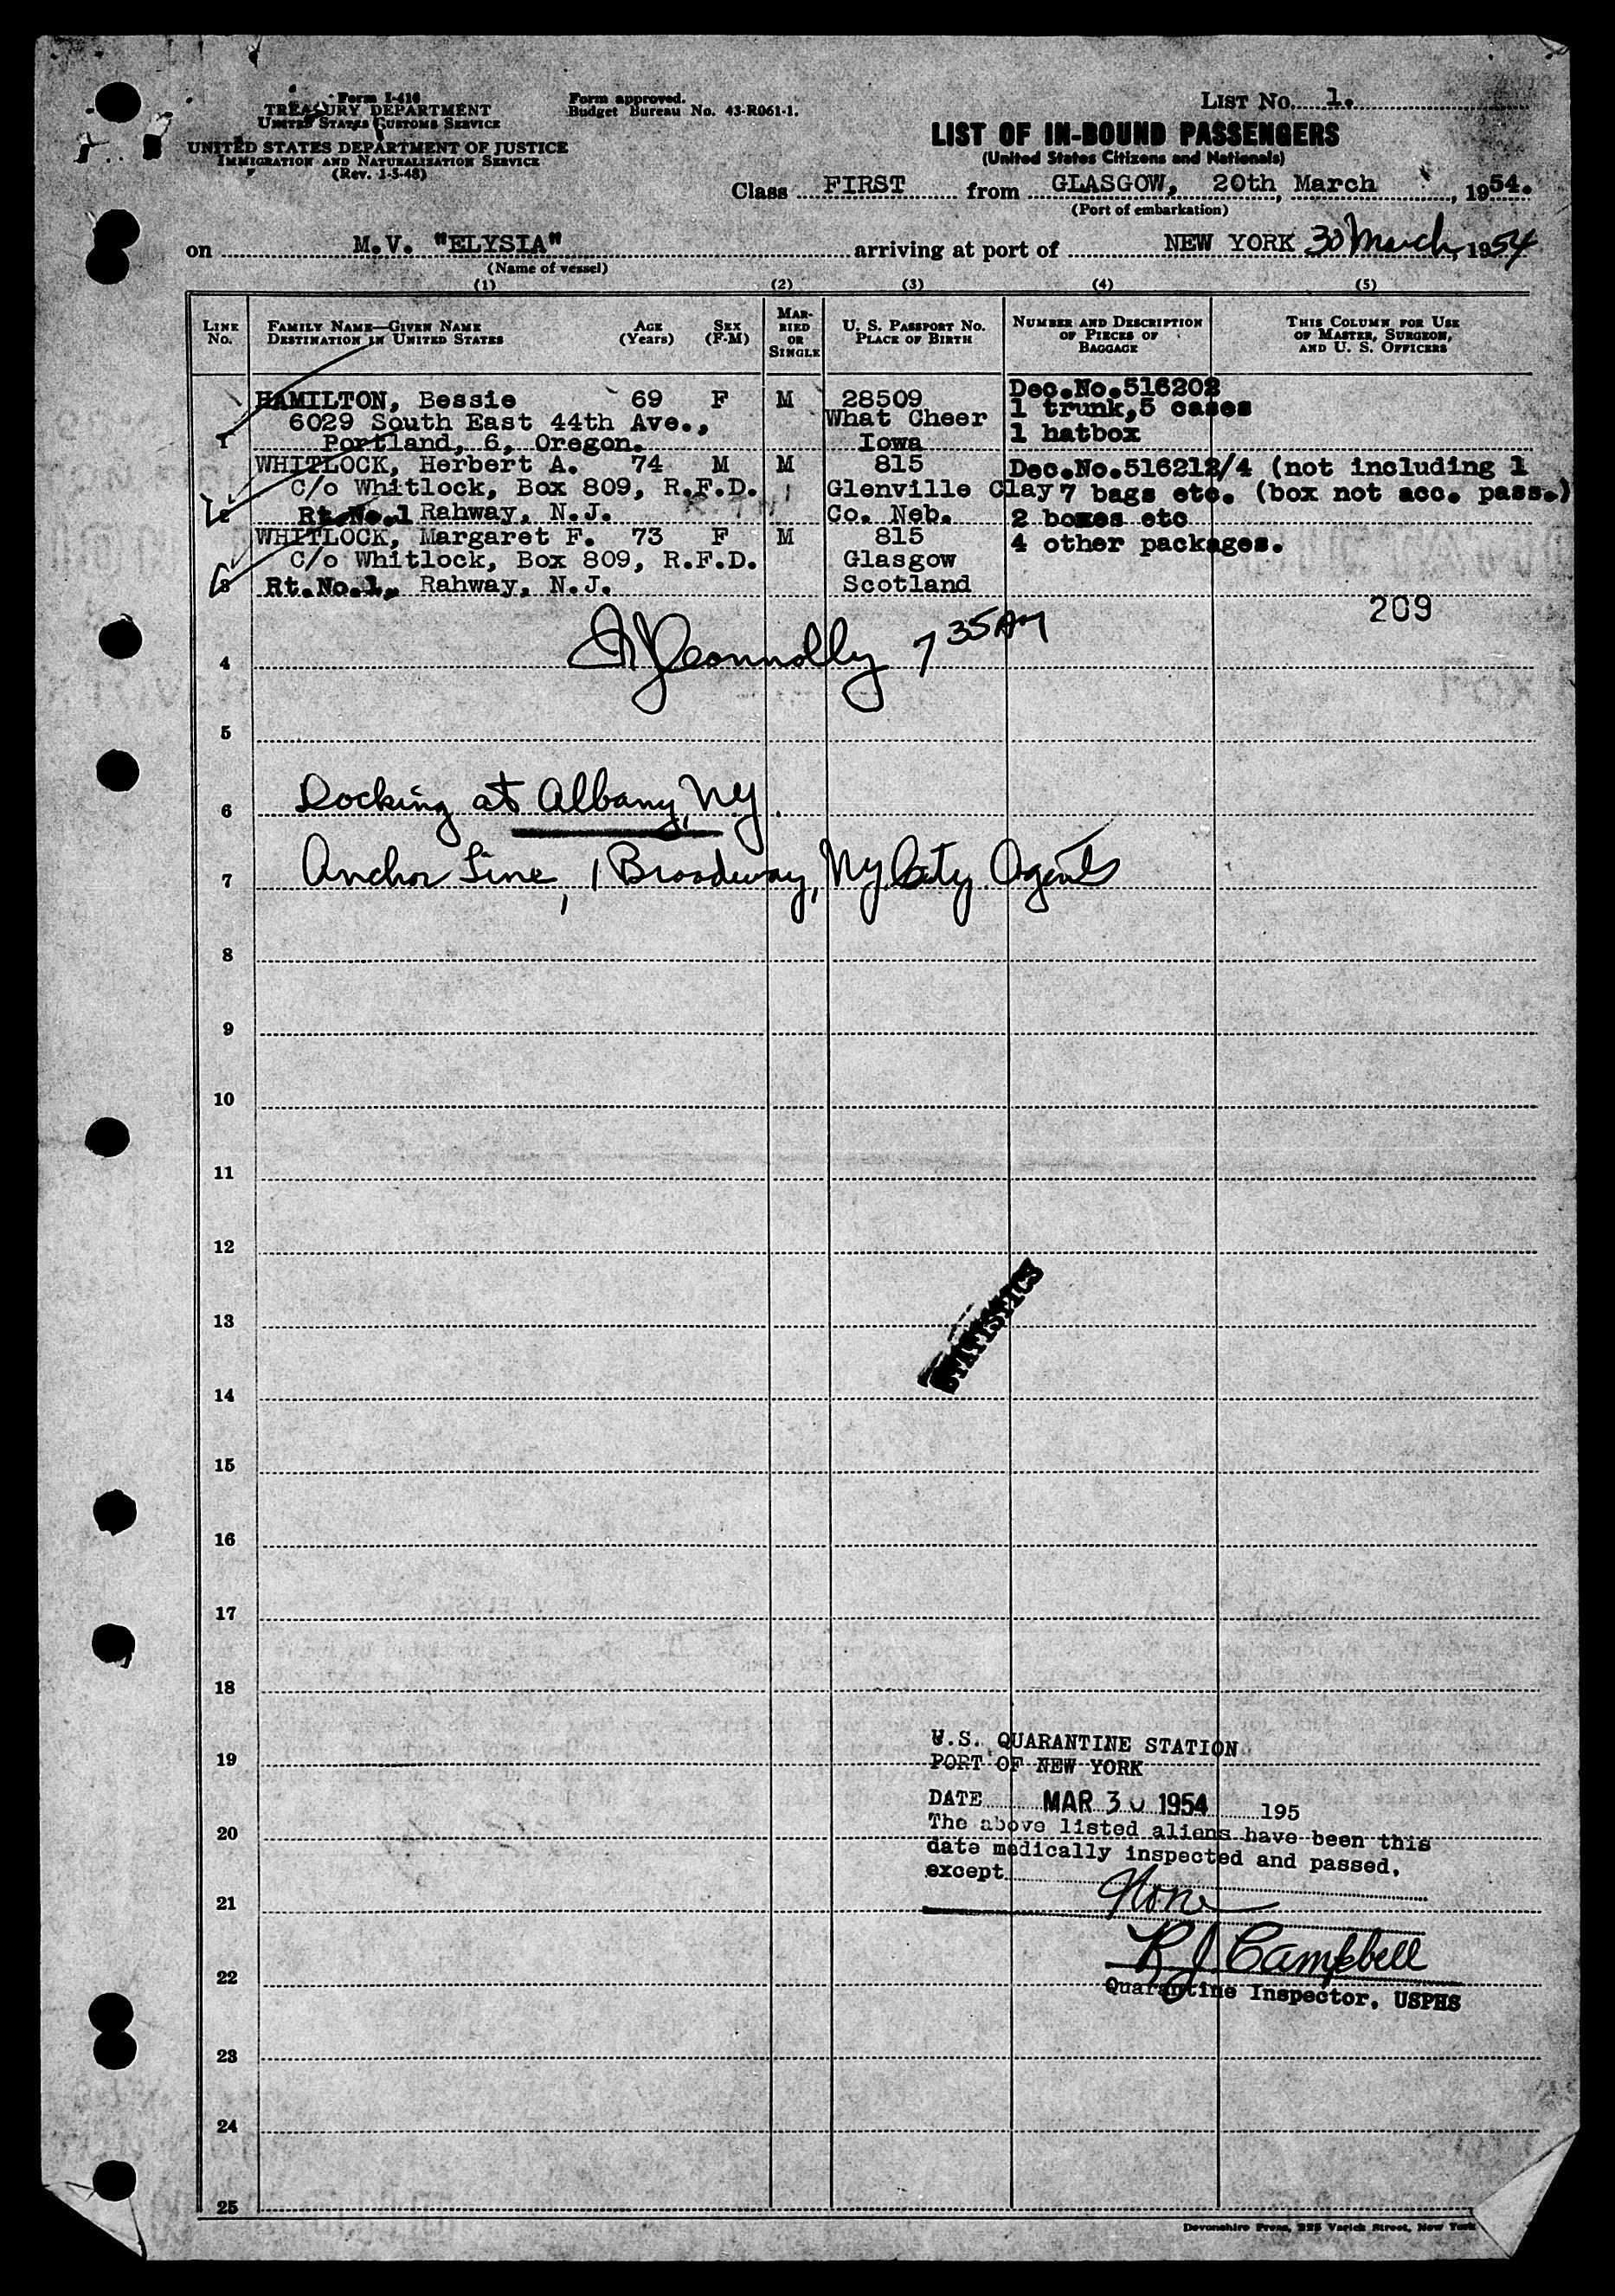 Form I-416
TREASURY DEPARTMENT
UNITED STATES CUSTOMS SERVICE
UNITED STATES DEPARTMENT OF JUSTICE
IMMIGRATION AND NATURALIZATION SERVICE
(Rev. 1-5-48)
Form approved.
Budget Bureau No. 43-R061-1.
LIST No. 1.
LIST OF IN-BOUND PASSENGERS
(United States Citizens and Nationals)
Class FIRST from GLASGOW, 20th March, 1954.
(Port of embarkation)
on M.V. "ELYSIA" arriving at port of NEW YORK 30 March, 1954
(Name of vessel)
(1) (2) (3) (4) (5)
LINE No.
FAMILY NAME—GIVEN NAME
DESTINATION IN UNITED STATES
AGE (Years)
SEX (F-M)
MARRIED OR SINGLE
U. S. PASSPORT No.
PLACE OF BIRTH
NUMBER AND DESCRIPTION OF PIECES OF BAGGAGE
THIS COLUMN FOR USE OF MASTER, SURGEON, AND U. S. OFFICERS
1 HAMILTON, Bessie 69 F M 28509 Dec.No.516202
6029 South East 44th Ave., What Cheer 1 trunk,5 cases
Portland, 6, Oregon. Iowa 1 hatbox
2 WHITLOCK, Herbert A. 74 M M 815 Dec.No.516212/4 (not including 1
C/o Whitlock, Box 809, R.F.D. Glenville Clay 7 bags etc. (box not acc. pass.)
Rt.No.1 Rahway, N.J. Co. Neb. 2 boxes etc
3 WHITLOCK, Margaret F. 73 F M 815 4 other packages.
C/o Whitlock, Box 809, R.F.D. Glasgow
Rt.No.1, Rahway, N.J. Scotland
209
Connolly 7 35 AM
4
5
6 Docking at Albany, NY.
7 Anchor Line, 1 Broadway, NY City Agents
8
9
10
11
12
13
STATISTICS
14
15
16
17
18
19
20
21
22
23
24
25
U.S. QUARANTINE STATION
PORT OF NEW YORK
DATE MAR 30 1954 195
The above listed aliens have been this
date medically inspected and passed,
except None
R J Campbell
Quarantine Inspector, USPHS
Devonshire Press, 225 Varick Street, New York